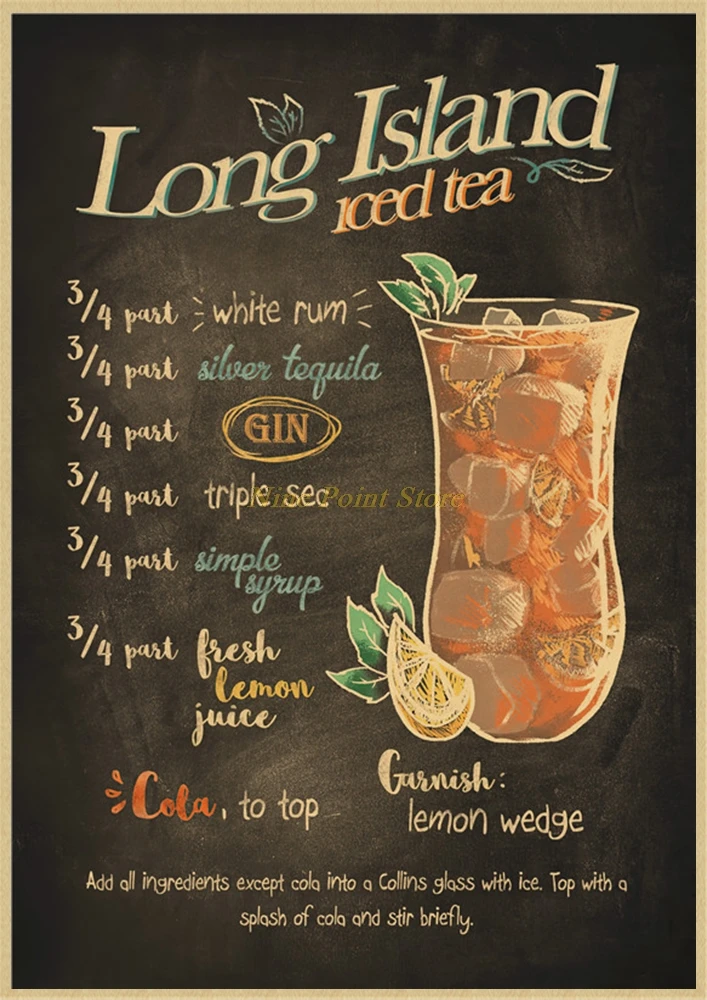 Long Island
iced tea
3/4 part white rum
3/4 part silver tequila
3/4 part GIN
3/4 part triple sec
Nine Point Store
3/4 part simple
syrup
3/4 part fresh
lemon
juice
Cola, to top
Garnish:
lemon wedge
Add all ingredients except cola into a Collins glass with ice. Top with a
splash of cola and stir briefly.